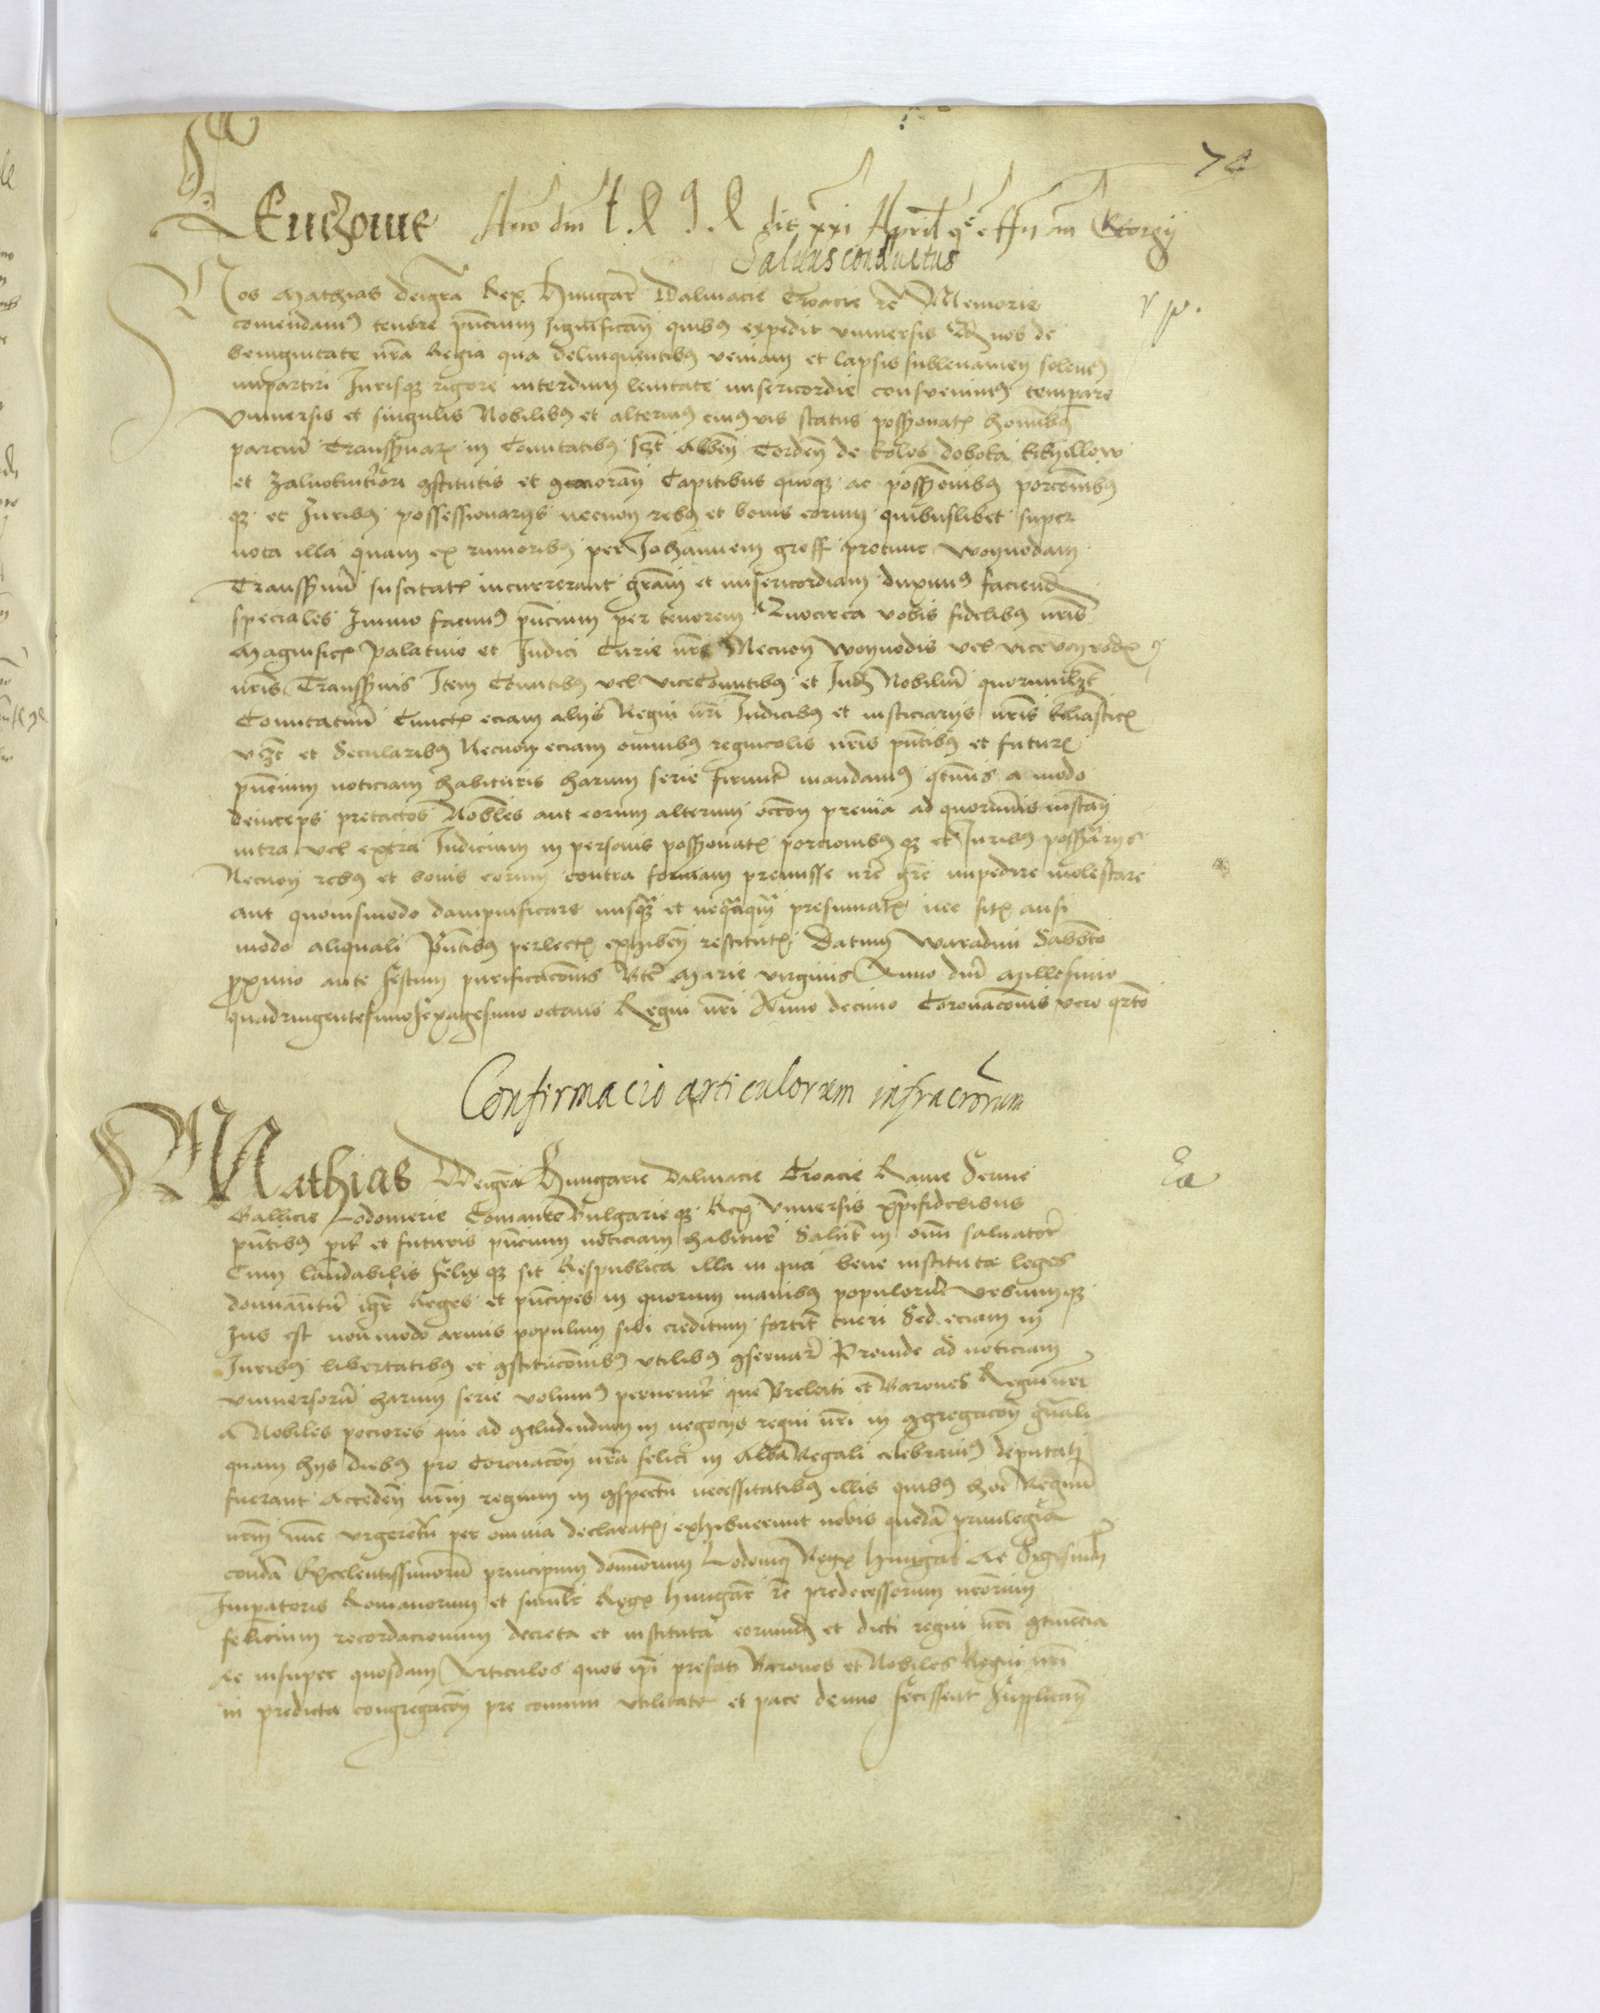 74
Anno dni die xxi April Georgy
Salvus conductus
Nos Mathias deigra Rex Hungarie Dalmacie Croacie rc Memorie
comendamus tenore pncium significan quibus expedit universis Quod nos de
benignitate nra Regia qua delinquentibus veniam et lapsis sublevamen solemus
impartiri Jurisque rigore interdum lenitate misericordie consuevimus temperare
Universis et singulis Nobilibus et alterius cuiusvis status possionatis hominibus
parcium Transsilvanarum in Comitatibus scilicet Alben Torden de kolos doboka kikyllew
et Zolnokinteriori constitutis et commoran Capitibus quoque ac possessionibus porcionibus
que et Juribus possessionarys necnon rebus et bonis eorum quibuslibet super
nota illa quam ex rumoribus per Johannem groff pretunc Woyvodam
Transsilvanum suscitatis incurrerant gram et misericordiam duximus faciend
speciales Immo facimus pncium per tenorem Quocirca vobis fidelibus nris
Magnificis Palatino et Judici Curie nre Necnon Woyvodis vel vicevoyvodis
nris Transsilvanis Item Comitibus vel viceComitibus et Jud Nobilium quorumlibet
Comitatuum Cunctis eciam alys Regni nri Judicibus et iusticiarys nris Ecclesiasticis
videlicet et Secularibus Necnon eciam omnibus regnicolis nris pntibus et futuris
pncium noticiam habituris harum serie firmiter mandamus quatenus a modo
deinceps pretactos Nobiles aut eorum alterum occasione premissa ad quorumvis instan
intra vel extra Judicium in personis possionatis porcionibus que et Juribus possionarys
Necnon rebus et bonis eorum contra formam premisse nre gre impedire molestare
aut quovismodo dampnificare nusquam et nequaquam presumatis nec sitis ausi
modo aliquali pntibus perlectis exhiben restitutis Datum Waradini Sabbato
proximo ante festum purificacionis Bte Marie virginis Anno dni Millesimo
quadringentesimosexagesimo octavo Regni nri Anno decimo Coronacionis vero qrto
Confirmacio articulorum infrascriptorum
Mathias Deigra Hungarie Dalmacie Croacie Rame Servie
Gallicie Lodomerie Comanie Bulgarieque Rex Universis xpifidelibus
pntibus pariter et futuris pncium noticiam habituris Salutem in omni salvatore
Cum laudabilis felixque sit Respublica illa in qua bene institute leges
dominantur igitur Reges et principes in quorum manibus populorum Urbiumque
Jus est non modo armis populum sibi creditum fortiter tueri Sed eciam in
Juribus libertatibus et constitucionibus utilibus conservare Proinde ad noticiam
universorum harum serie volumus pervenire que Prelati et Barones Regni nri
a Nobiles pociores qui ad concludendum in negocys regni nri in congregacione generali
quam hys diebus pro Coronacione nra felici in AlbaRegali celebravimus deputati
fuerant Acceden nrm regium in conspectum necessitatibus illis quibus hoc Regnum
nrm nunc urgeretur per omnia declaratis exhibuerunt nobis quedam privilegia
condam Excelentissimorum principum dominorum Lodovici Regis Hungarie Ac Sigismundi
Imperatoris Romanorum et similiter Regis Hungarie rc predecessorum nrorum
felicium recordacionum decreta et instituta eorundem et dicti regni nri continencia
Ac insuper quosdam Articulos quos ipsi prefati Barones et Nobiles Regni nri
in predicta congregacione pro comuni utilitate et pace denuo fecissent Supplican